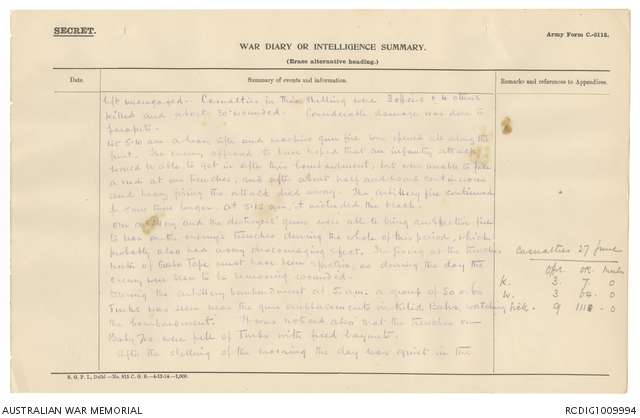 SECRET.
Army Form C.-2118.
WAR DIARY OR INTELLIGENCE SUMMARY.
(Erase alternative heading.)
Date.
Summary of events and information.
Remarks and references to Appendices.
left unengaged. Casualties in this shelling were 3 officers & 4 others
killed and about 30 wounded. Considerable damage was done to
parapets.
At 5.10 am a heavy rifle and machine gun fire was opened all along the
front. The enemy appeared to have hoped that an infantry attack
would be able to get in after this bombardment, but were unable to face
a rush at our trenches, and after about half an hour continuous
and heavy firing the attack died away. The artillery fire continued
for some time longer, at 5.15 am, it included the beach.
Our artillery and the destroyers guns were able to bring an effective fire
to bear on the enemy's trenches during the whole of this period, which
probably also had a very discouraging effect. The firing at the trenches
north of Gaba Tepe must have been effective, as during the day the
enemy were seen to be removing wounded.
During the artillery bombardment at 5 am, a group of 50 or 60
Turks was seen near the gun emplacements in Kilid Bahr, watching
the bombardment. It was noticed also that the trenches on
Baby 700 were full of Turks with fixed bayonets.
After the shelling of the morning the day was quiet in the
Casualties 27 June
Ofr. OR. Mules
K. 3. 7. 0
W. 3 0
9 0
S. G. P. I., Delhi
AUSTRALIAN WAR MEMORIAL
RCDIG1009994